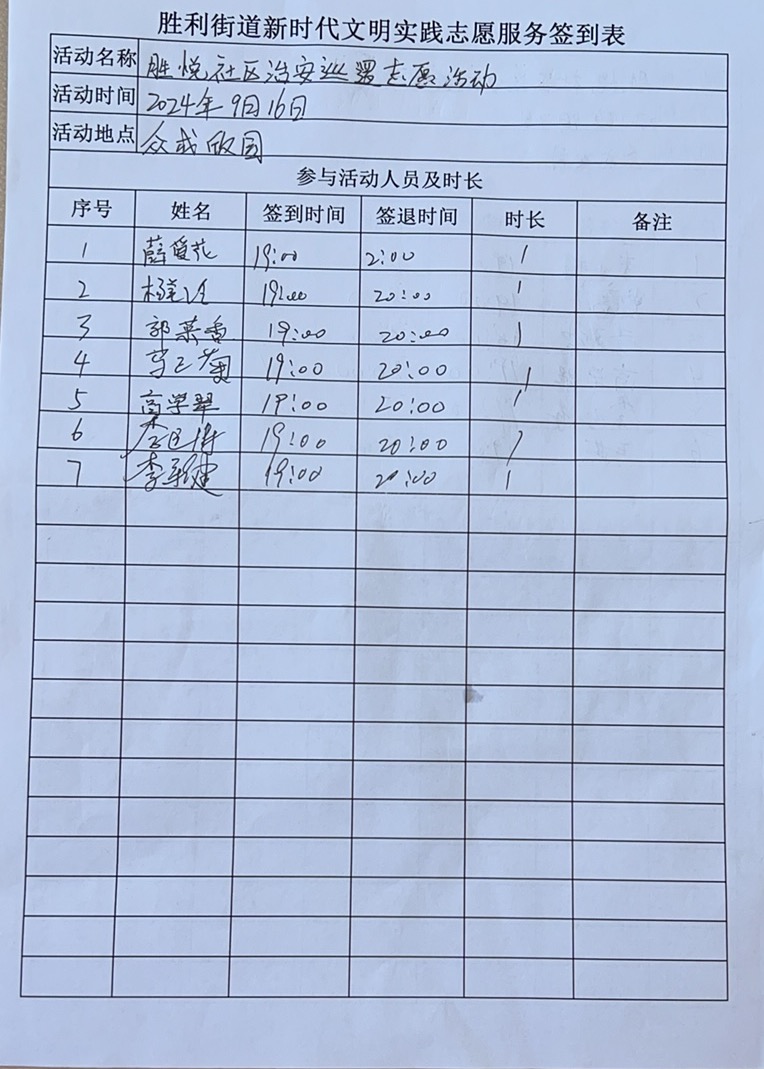 胜利街道新时代文明实践志愿服务签到表
活动名称 胜悦社区治安巡逻志愿活动
活动时间 2024年9月16日
活动地点 众成
参与活动人员及时长
序号 姓名 签到时间 签退时间 时长 备注
1 薛爱花 19:00 2:00 1
2 19:00 20:00 1
3 郭菜香 19:00 20:00 1
4 19:00 20:00 1
5 高学翠 19:00 20:00 1
6 19:00 20:00 1
7 李 19:00 20:00 1